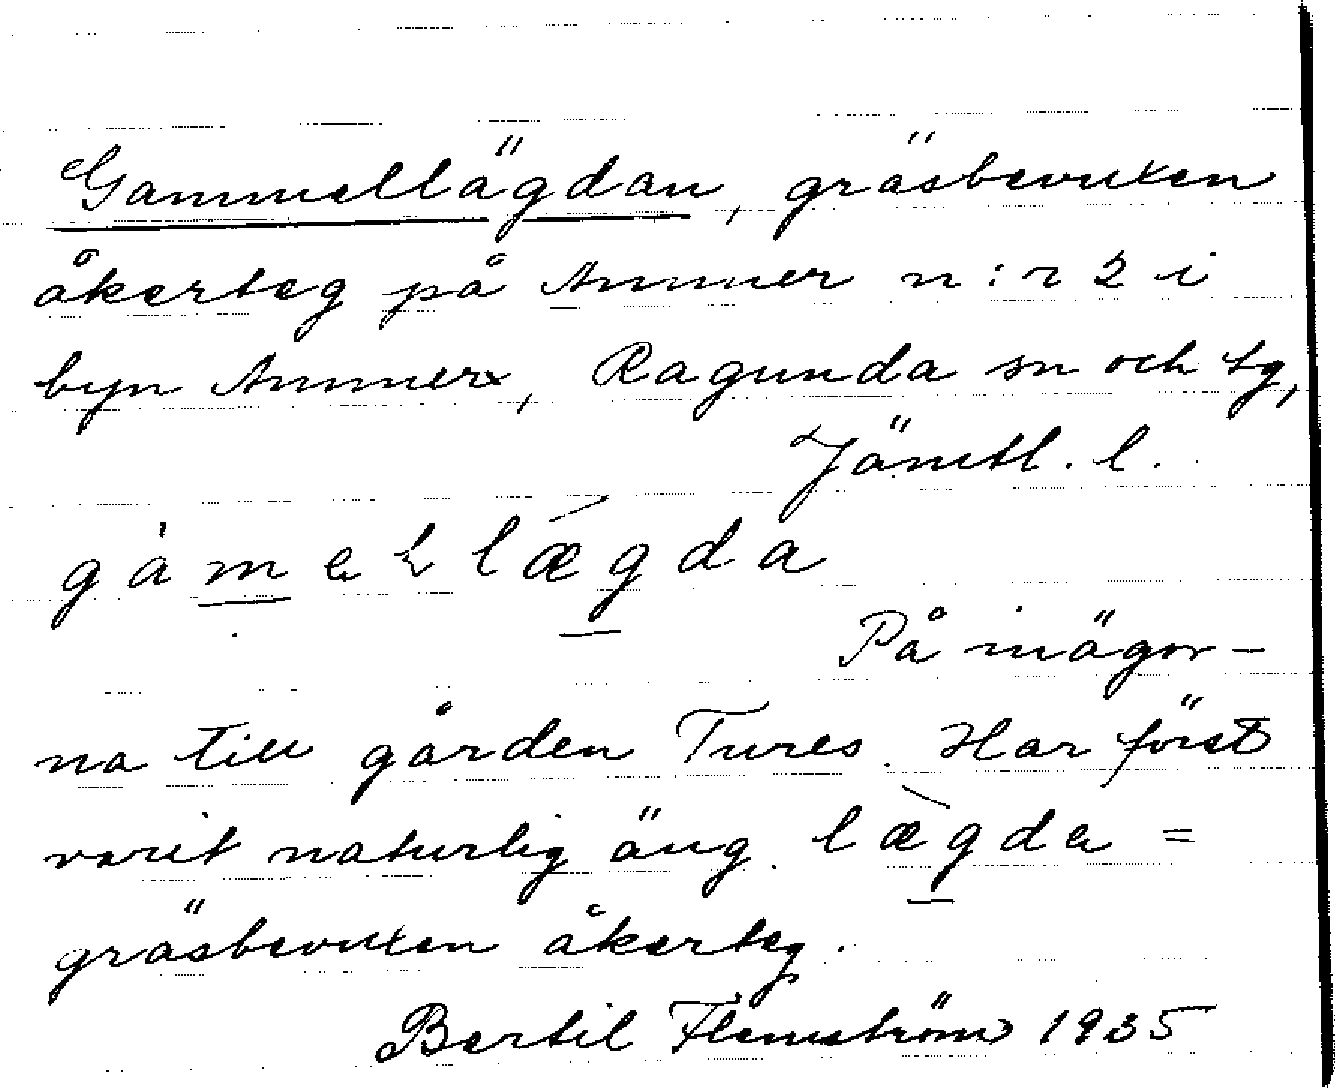 Gammellägdan, gräsbevuxen
åkerteg på Ammer n:r 2 i
byn Ammer, Ragunda sn och tg,
Jämtl. l.
gamellægda
På inägor-
na till gården Tures. Har först
varit naturlig äng. lægda =
gräsbevuxen åkerteg.
Bertil Flemström 1935